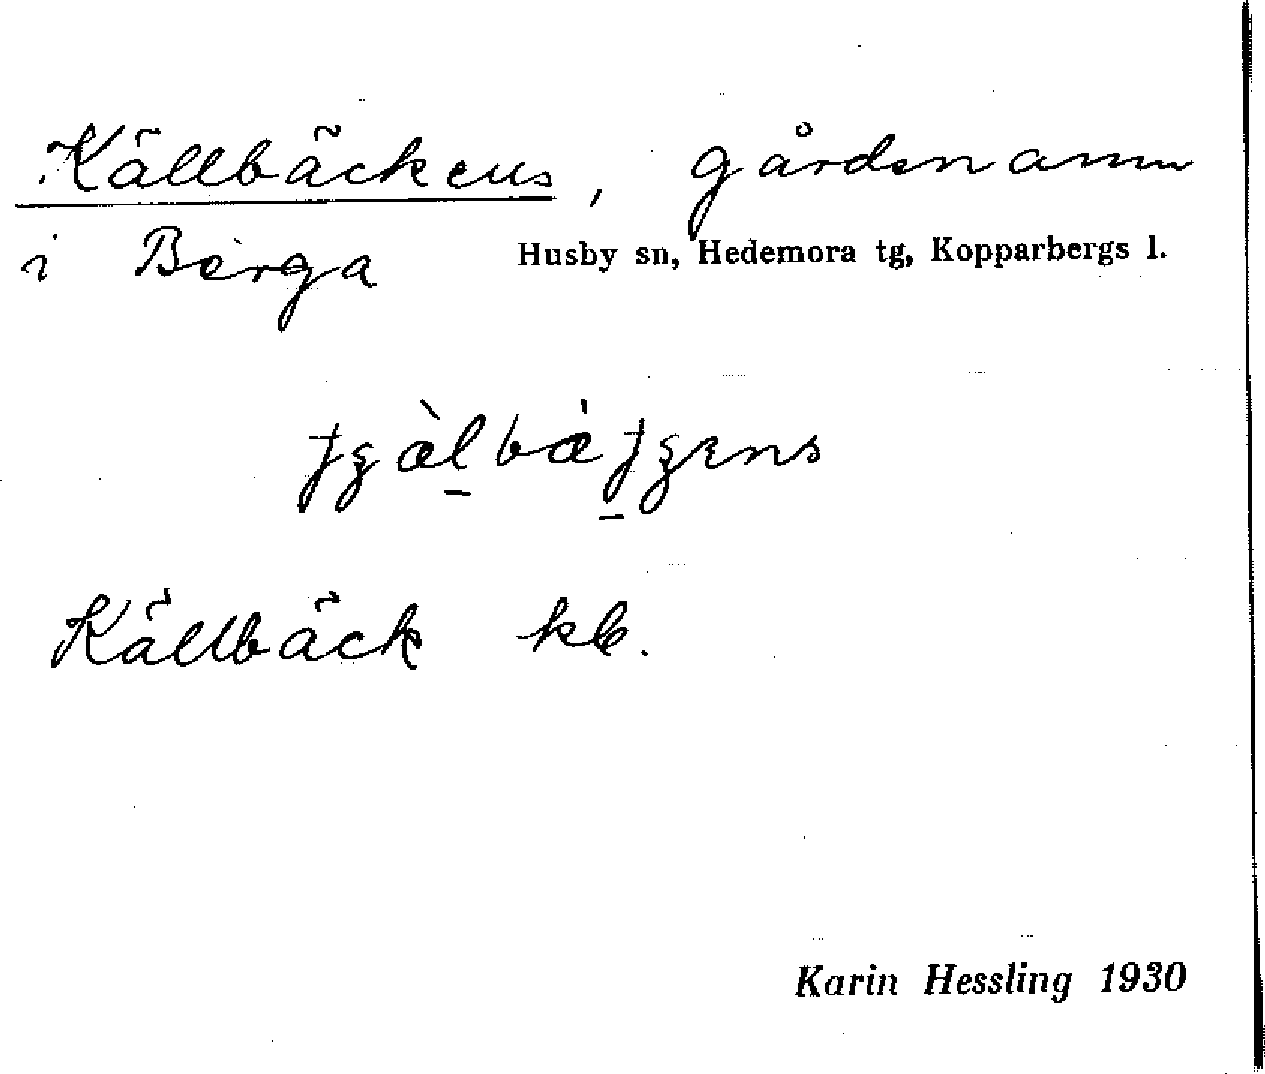 Källbäckens, gårdsnamn
i Berga Husby sn, Hedemora tg, Kopparbergs l.
Källbäck kb.
Karin Hessling 1930